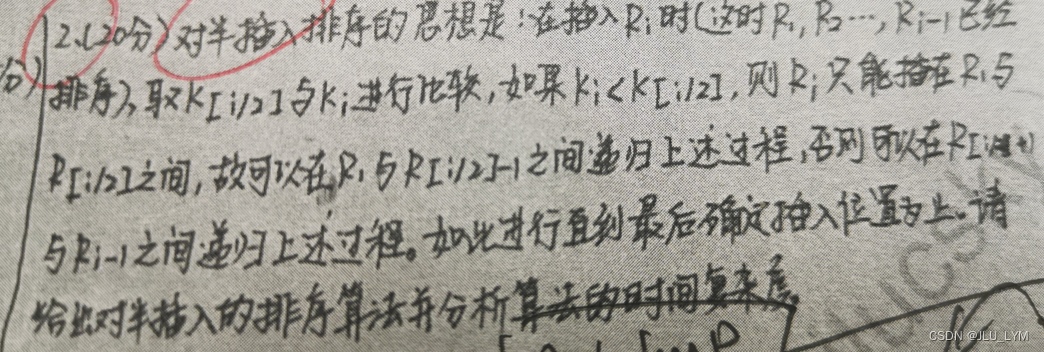 2.(20分)对半插入排序的思想是:在插入Ri时(这时R1,R2…,Ri-1已经
分)
排序),取K[i/2]与Ki进行比较,如果Ki<K[i/2],则Ri只能插在R1与
R[i/2]之间,故可以在R1与R[i/2]-1之间递归上述过程,否则可以在R[i/2]+1
与Ri-1之间递归上述过程。如此进行直到最后确定插入位置为止。请
给出对半插入的排序算法并分析算法的时间复杂度
CSDN @JLU_LYM